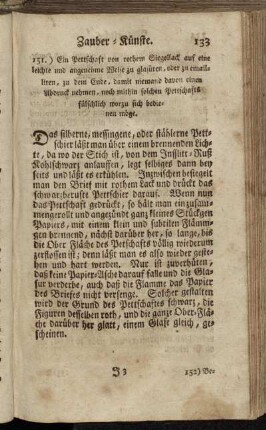 Zauber-Künste. 133
151.) Ein Pettschaft von rothem Siegellack auf eine
leichte und angenehme Weise zu glasüren, oder zu emaill-
iren, zu dem Ende, damit niemand davon einen
Abdruck nehmen, noch mithin solchen Pettschafts
fälschlich worzu sich bedie-
nen möge.
Das silberne, messingene, oder stählerne Pett-
schier läßt man über einem brennenden Lich-
te, da wo der Stich ist, von dem Inslitt-Ruß
Kohlschwarz anlauffen, legt selbiges dann bey
seits und läßt es erkühlen. Inzwischen besiegelt
man den Brief mit rothem Lack und drückt das
schwarzberuste Pettschier darauf. Wenn nun
das Pettschaft gedrückt, so hält man ein zusam-
mengerollt und angezündt ganz kleines Stückgen
Papiers, mit einem klein und subtilen Flämm-
gen brinnend, nächst darüber her, so lange, bis
die Ober Fläche des Petschafts völlig wiederum
zerflossen ist; denn läßt man es also wieder geste-
hen und hart werden. Nur ist zuverhüten,
daß keine Papier-Asche darauf falle und die Gla-
sur verderbe, auch daß die Flamme das Papier
des Briefes nicht versenge. Solcher gestalten
wird der Grund des Pettschaftes schwarz, die
Figuren desselben roth, und die ganze Ober-Flä-
che darüber her glatt, einem Glase gleich, ge-
scheinen.
J 3 152) Be-